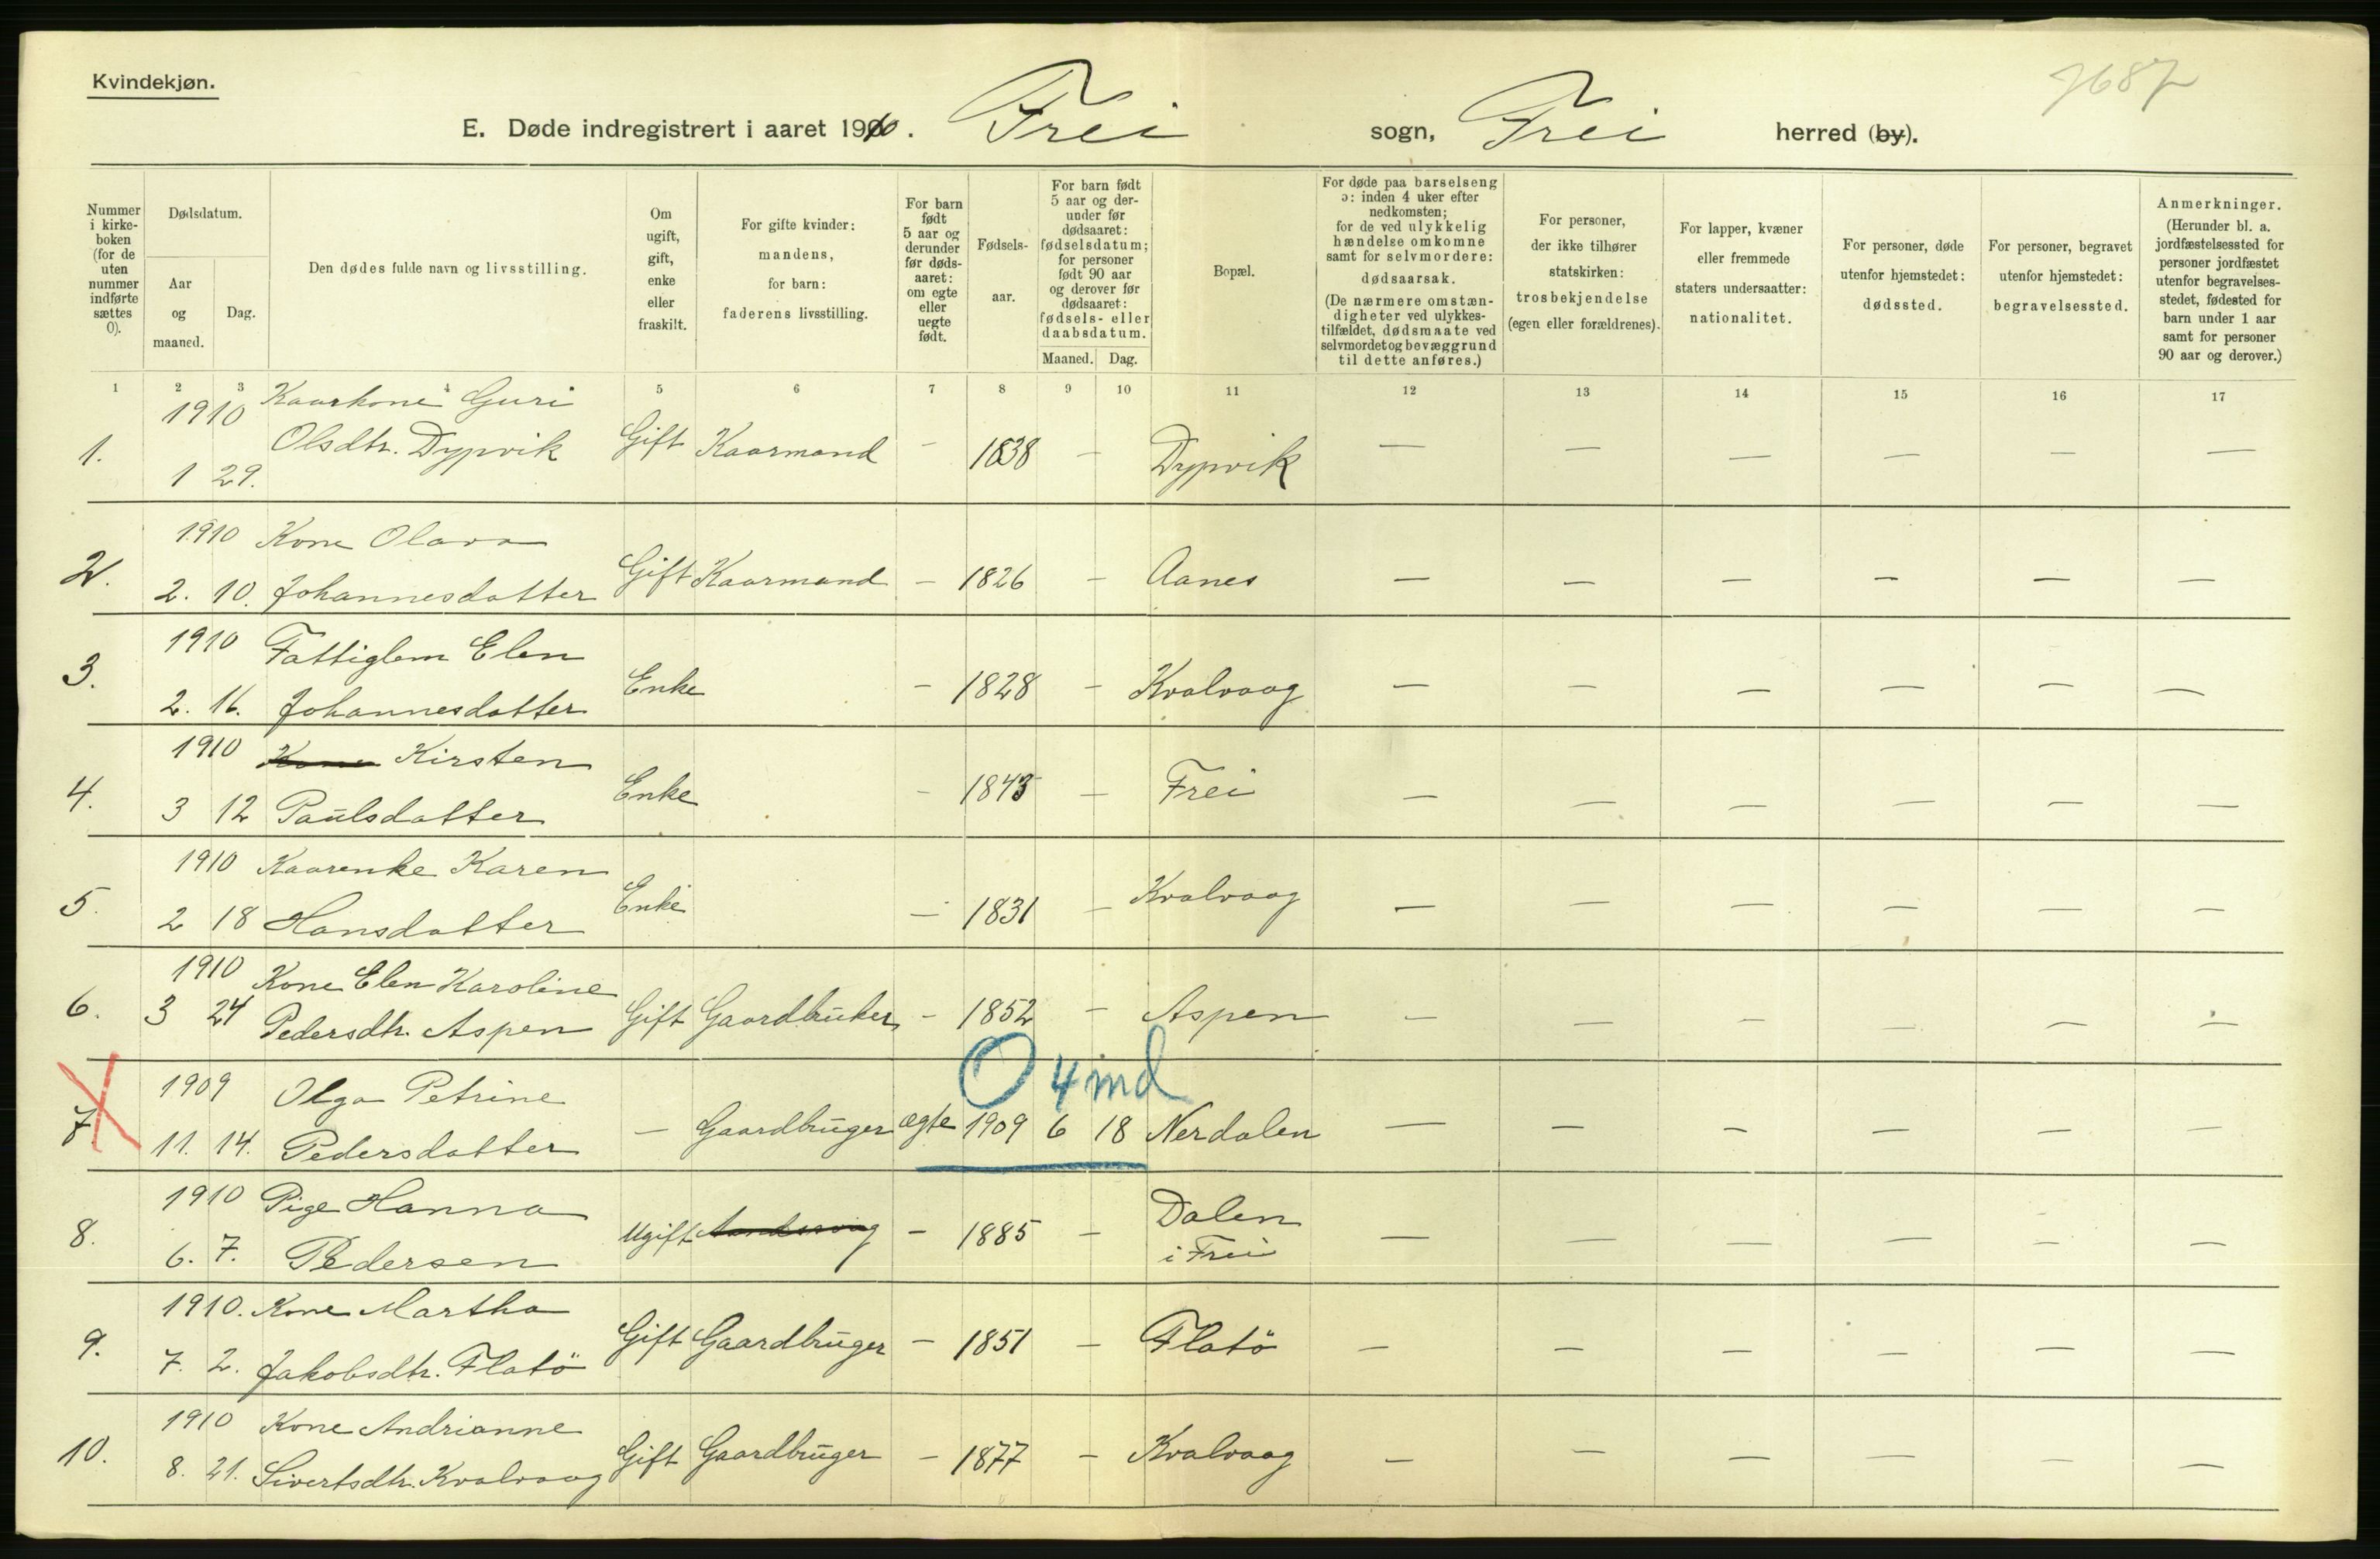 Kvindekjøn.
7687
E. Døde indregistrert i aaret 1910. Frei sogn, Frei herred (by).
Nummer i kirkeboken (for de uten nummer indførte sættes 0).
Dødsdatum.
Aar og maaned.
Dag.
Den dødes fulde navn og livsstilling.
Om ugift, gift, enke eller fraskilt.
For gifte kvinder: mandens, for barn: faderens livsstilling.
For barn født 5 aar og derunder før dødsaaret: om egte eller uegte født.
Fødselsaar.
For barn født 5 aar og derunder før dødsaaret: fødselsdatum; for personer født 90 aar og derover før dødsaaret: fødsels- eller daabsdatum.
Maaned. Dag.
Bopæl.
For døde paa barselseng ɔ: inden 4 uker efter nedkomsten; for de ved ulykkelig hændelse omkomne samt for selvmordere: dødsaarsak. (De nærmere omstændigheter ved ulykkestilfældet, dødsmaate ved selvmordet og bevæggrund til dette anføres.)
For personer, der ikke tilhører statskirken: trosbekjendelse (egen eller forældrenes).
For lapper, kvæner eller fremmede staters undersaatter: nationalitet.
For personer, døde utenfor hjemstedet: dødssted.
For personer, begravet utenfor hjemstedet: begravelsessted.
Anmerkninger. (Herunder bl. a. jordfæstelsessted for personer jordfæstet utenfor begravelsesstedet, fødested for barn under 1 aar samt for personer 90 aar og derover.)
1 2 3 4 5 6 7 8 9 10 11 12 13 14 15 16 17
1910 Kaarkone Guri
1. 1 29. Olsdtr. Dypvik Gift Kaarmand - 1838 - Dypvik — — — — — —
1910 Kone Olava
2. 2. 10. Johannesdatter Gift Kaarmand - 1826 - Aanes — — — — — —
1910 Fattiglem Elen
3. 2. 16. Johannesdatter Enke - 1828 - Kvalvaag — — — — — —
1910 Kone Kirsten
4. 3 12 Paulsdatter Enke - 1843 - Frei — — — — — —
1910 Kaarenke Karen
5. 2 18 Hansdatter Enke - 1831 - Kvalvaag — — — — — —
1910 Kone Elen Karoline
6. 3 24 Pedersdtr. Aspen Gift Gaardbruker - 1852 - Aspen — — — — — —
O 4 md
1909 Olga Petrine
7. 11. 14. Pedersdatter — Gaardbruger ægte 1909 6 18 Nerdalen — — — — — —
1910 Pige Hanna
8. 6. 7. Pedersen Ugift - 1885 - Dalen i Frei — — — — — —
1910. Kone Martha
9. 7. 2. Jakobsdtr. Flatö Gift Gaardbruger - 1851 - Flatö — — — — — —
1910 Kone Andrianne
10. 8. 21. Sivertsdtr. Kvalvaag Gift Gaardbruger - 1877 - Kvalvaag — — — — — —